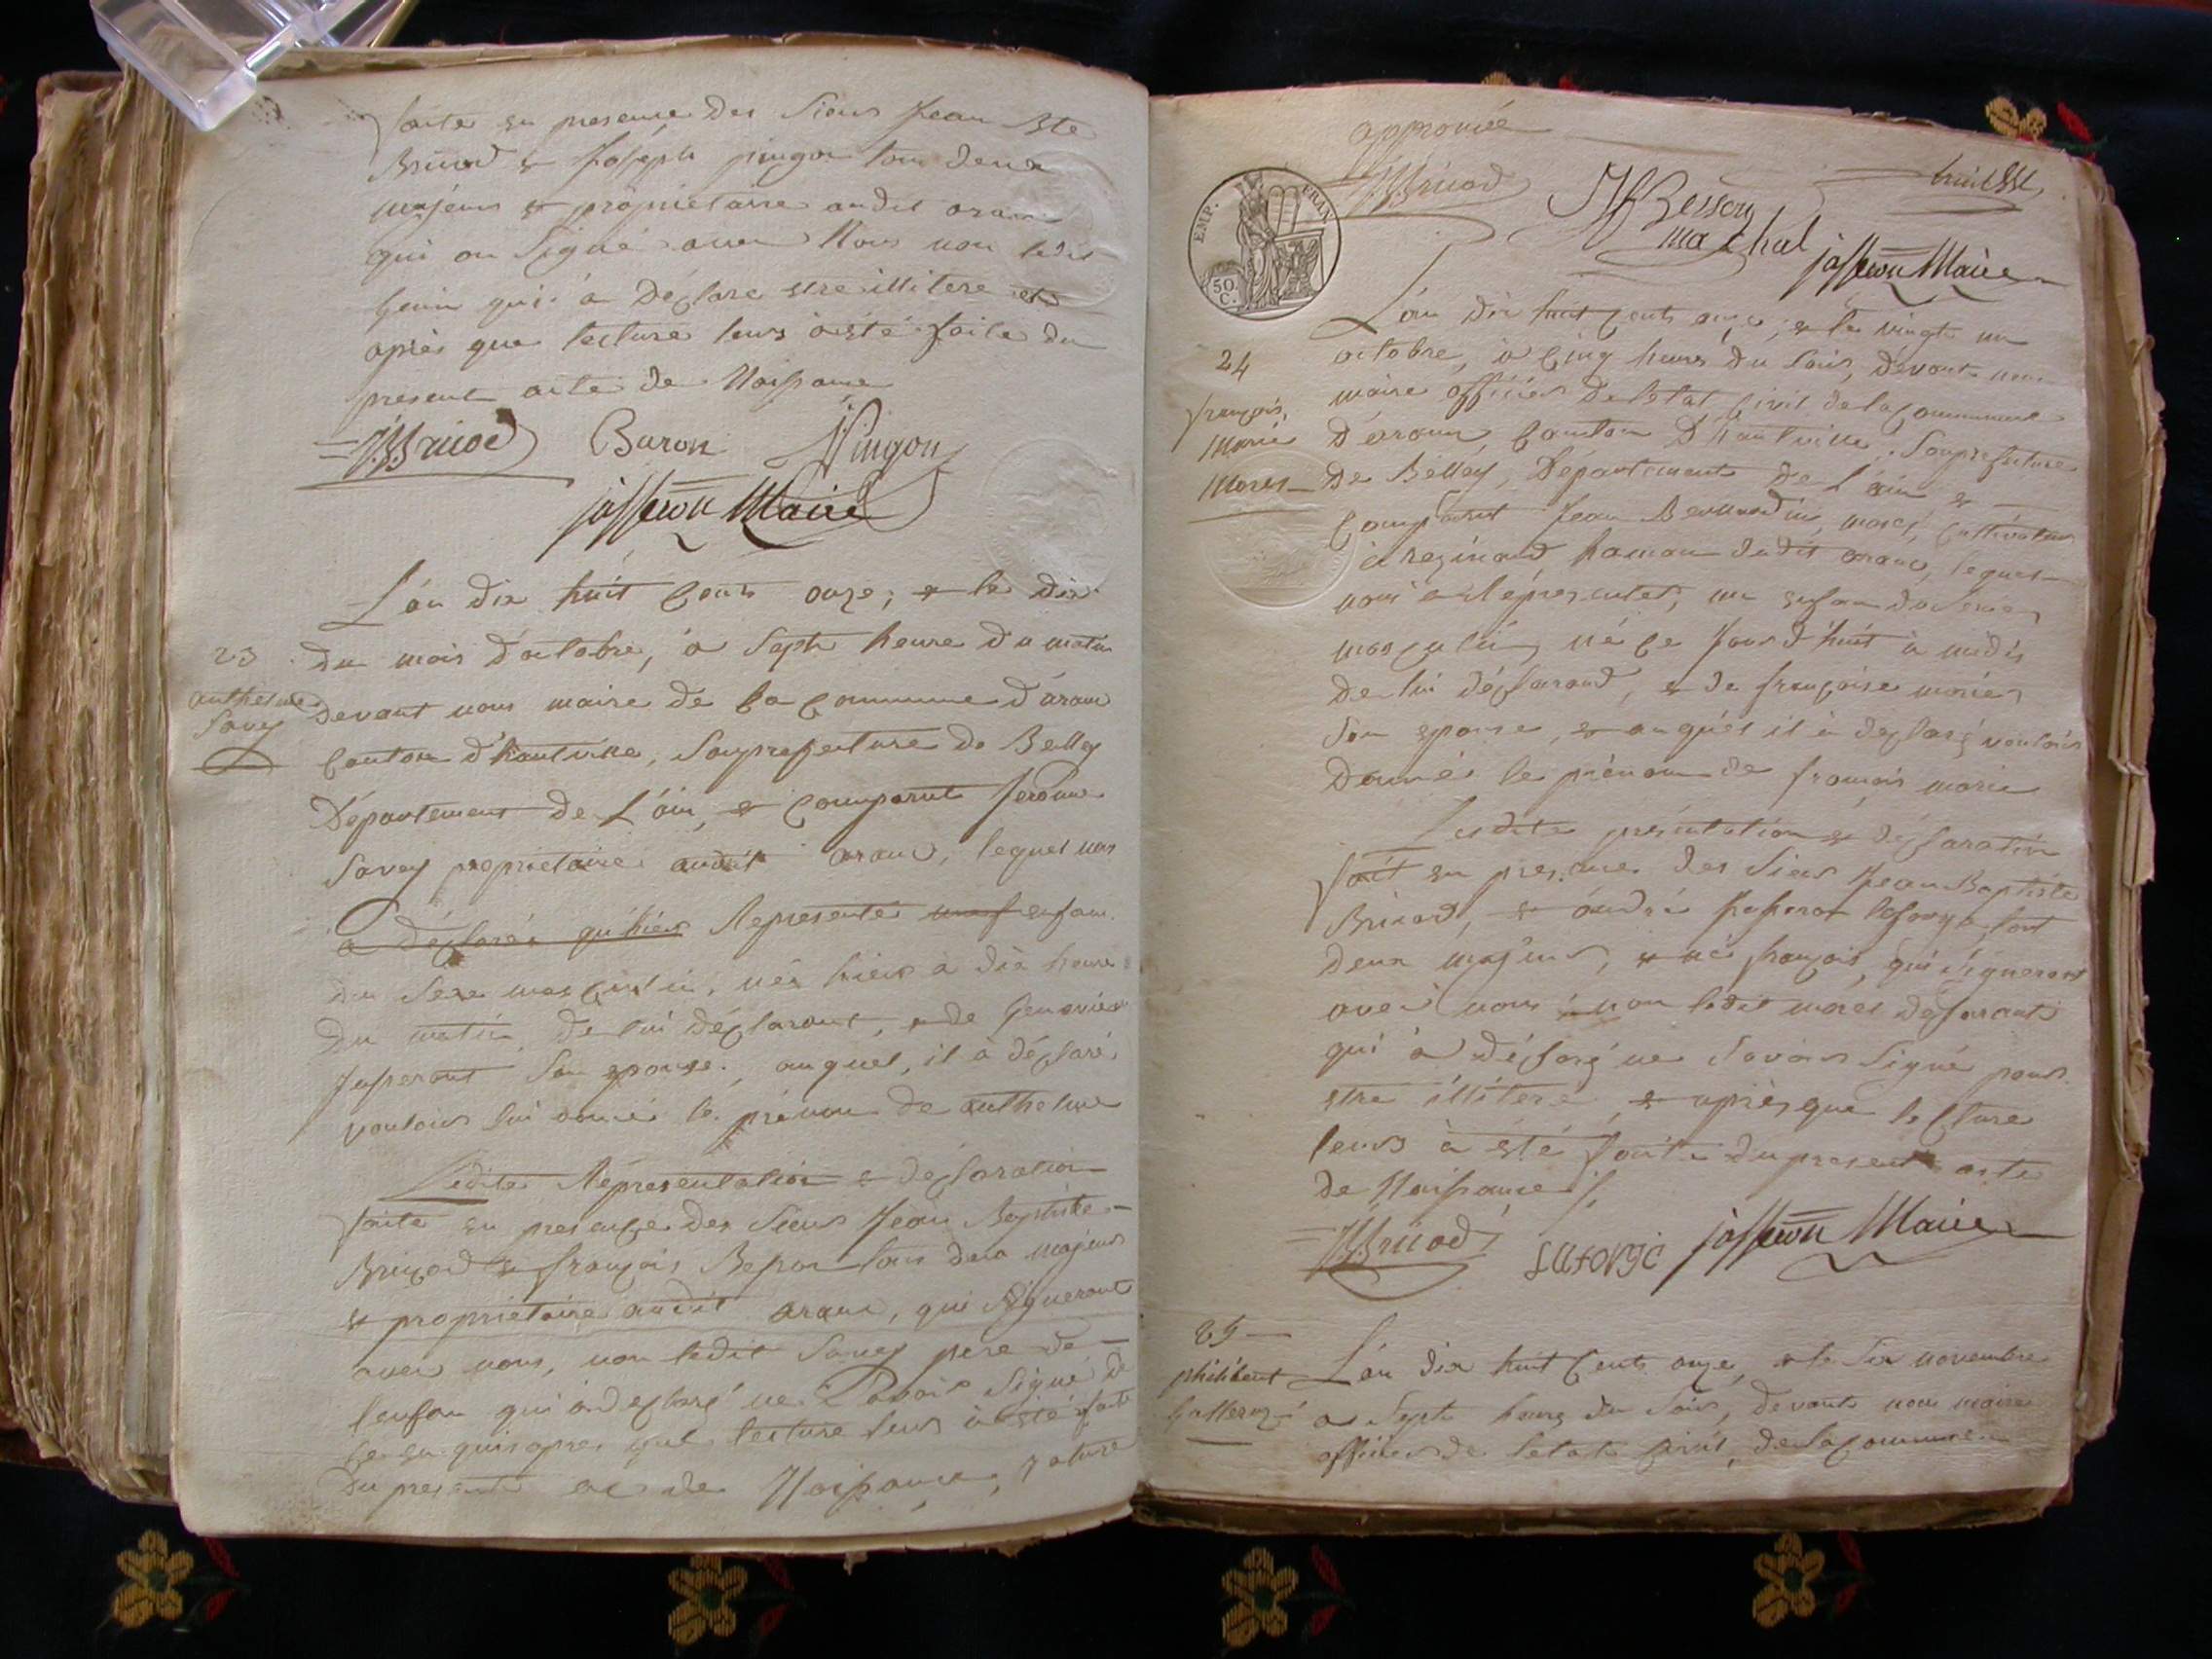 faite en presence des Sieurs Jean Bte
Bricod & Joseph pingon tous deux
majeurs & propriétaire audit aranc
qui on Signé avec Nous non ledit
qui à déclare etre illitere et
apres que lecture leurs à eté faite du
present acte de Naissance
JBBricod Buron JPingon
josseron Maire
L'an dix huit Cents onze, & le dix
23 du mois d'octobre, à Sept heure du matin
anthelme Savey devant nous maire de la Commune d'aranc
Canton d'hautville, Souprefecture de Belley
Département de L'ain, & Comparut Jerome
Savey propriétaire audit aranc, lequel nous
a déclaré qu'hier Représenté un enfan
du Sexe masculin, né hier à dix heure
du matin, de lui déclarant, & de Genevieve
Josserant Son epouse. auquel, il à déclaré
vouloir lui donné le prénom de anthelme
Ledite Réprésentation & déclaration
faite en presence des Sieurs Jean Baptiste
Bricod & françois Besson tous deux majeurs
& propriétaire audit aranc, qui Signeront
avec nous, non ledit Savey pere de
lenfan qui à declaré ne Savoir Signé de
ce enquis apres que lecture leurs à été fait
du present acte de Naissance, rature
approuvé
JBBricod JfBesson
marchal josseron Maire
EMP. FRAN
50 C.
L'an dix huit Cents onze, & le vingt un
24 octobre, à Cinq heures du Soir, devant nous
françois maire officier de letat Civil de la Commune
Marie D'aranc Canton D'hautville, Souprefecture
Morel De Belley, Département de L'ain &
Comparut Jean Bernardin morel, Cultivateur
à rezinand hamau dudit aranc, lequel
nous a Réprésentet, un enfan du Sexe
masculin, né Ce Jourd'huit à midis
de lui déclarand, & de françoise marie
Son epouse, & auquel il à declaré vouloir
donné le prénom de francois marie
Lesdite présentation & déclaration
fait en presence des Sieurs Jean Baptiste
Bricod, & andré Josseron laforge tout
deux majeurs, & né françois, qui Signeront
avec nous, non ledit morel déclarant
qui à déclaré ne Savoir Signé pour
etre illitere, & après que lecture
leurs à été fait du present acte
de Naissance
JBBricod Laforge josseron Maire
25
philibert L'an dix huit Cents onze, & le Six novembre
à Sept heures du Soir, devant nous maire
officier de letat Civil, de la Commune